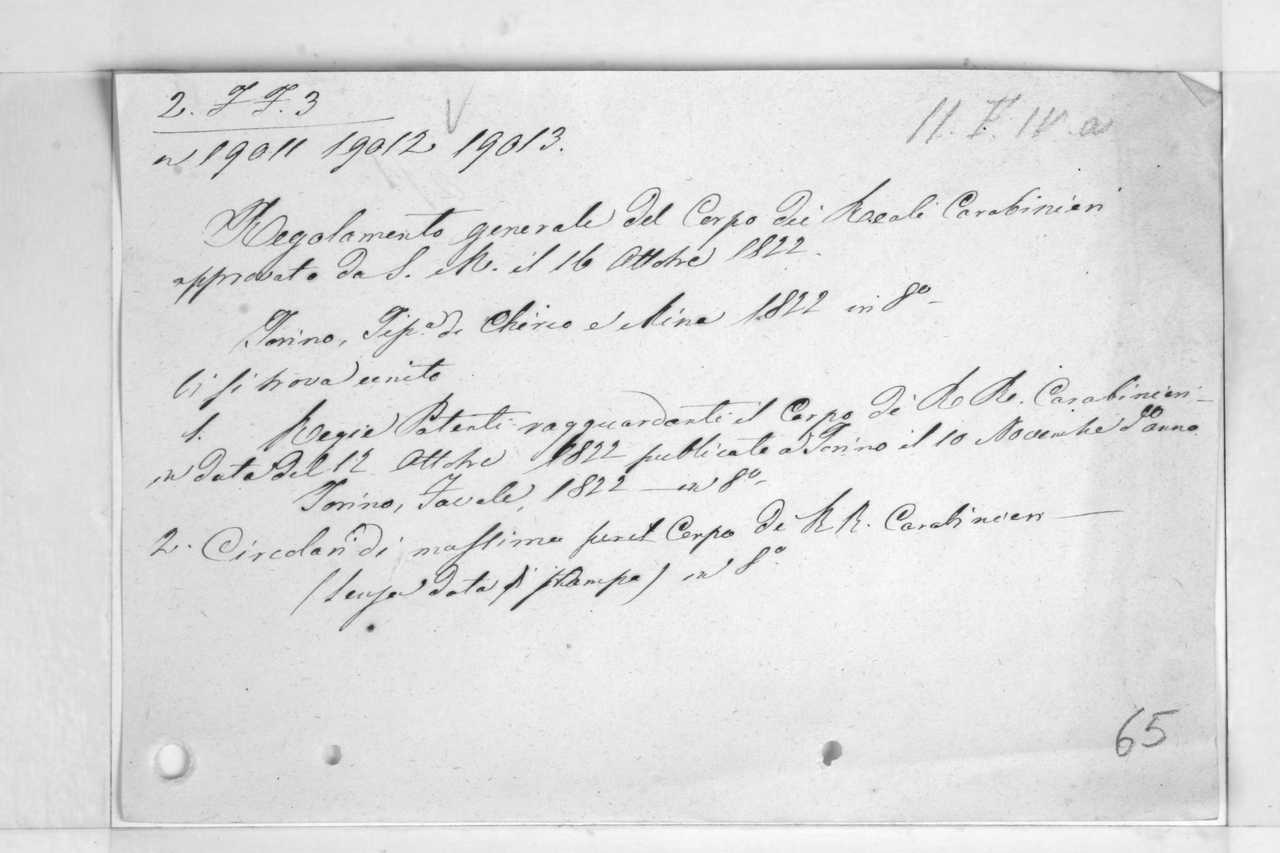 2. F F. 3
II. F. IV. a
n 19011 19012 19013.
Regolamento generale del Corpo dei Reali Carabinieri
approvato da S. M. il 16 Ottobre 1822.
Torino, Tip.a di Chirio e Mina 1822 in 8°
Ci si trova unito
1. Regie Patenti ragguardanti il Corpo de' R R. Carabinieri
in data del 12 Ottobre 1822 publicate a Torino il 10 Novembre d. anno
Torino, Favale, 1822 — in 8°
2. Circolari di massima per il Corpo de R R. Carabinieri —
(Senza data di stampa) in 8°
65